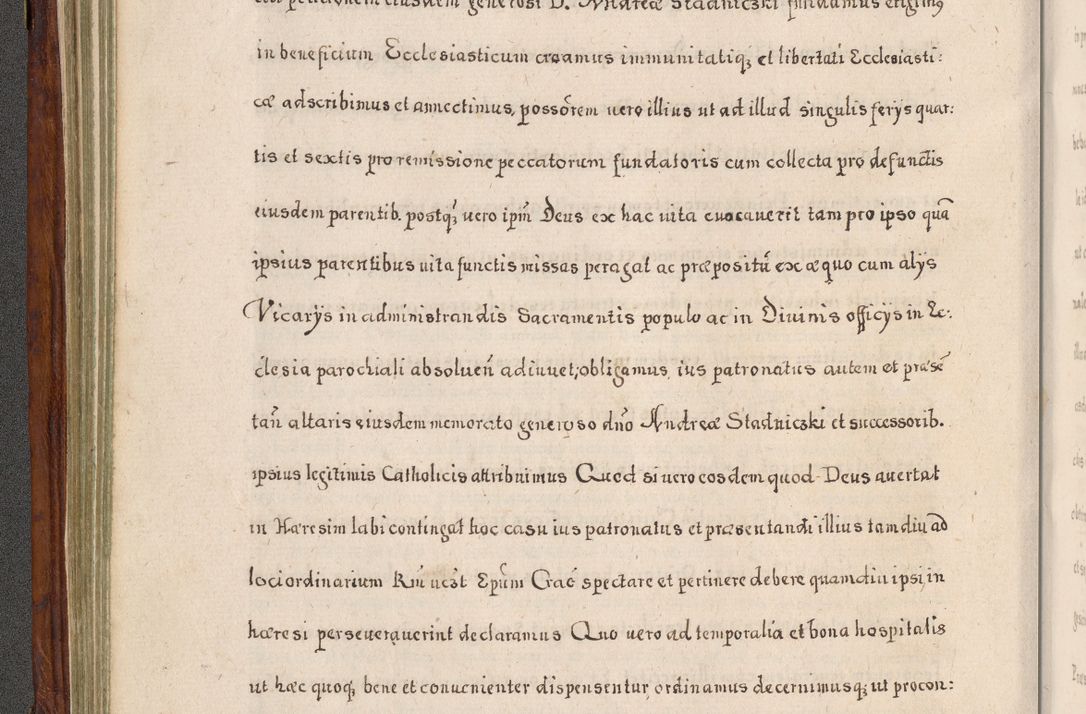 petitionem eiusdem generosi D. Andreæ Stadniczki fundamus erigimꝰ
in beneficium Ecclesiasticum creamus immunitatiq; et libertati Ecclesiasti:
cæ adscribimus et annectimus, possōrem uero illius ut ad illud singulis ferys quar:
tis et sextis pro remissione peccatorum fundatoris cum collecta pro defunctis
eiusdem parentib. postq; uero ipm̄ Deus ex hac uita euocauerit tam pro ipso quā
ipsius parentibus uita functis missas peragat ac præpositū ex æquo cum alys
Vicarys in administrandis Sacramentis populo ac in Diuinis officys in Ec:
clesia parochiali absoluen̄ adiuuet, obligamus, ius patronatus autem et præsē
tan̄ altaris eiusdem memorato generoso dn̄o Andreæ Stadniczki et successorib.
ipsius legitimis Catholicis attribuimus Quod si uero eosdem quod Deus auertat
in Hæresim labi contingat hoc casu ius patronatus et præsentandi illius tamdiu ad
loci ordinarium Rm̄ uczt Epūm Crac̄ spectare et pertinere debere quamdiu ipsi in
hæresi perseuerauerint declaramus Quo uero ad temporalia et bona hospitalis
ut hæc quoq, bene et conuenienter dispensentur ordinamus decernimusq; ut procon: